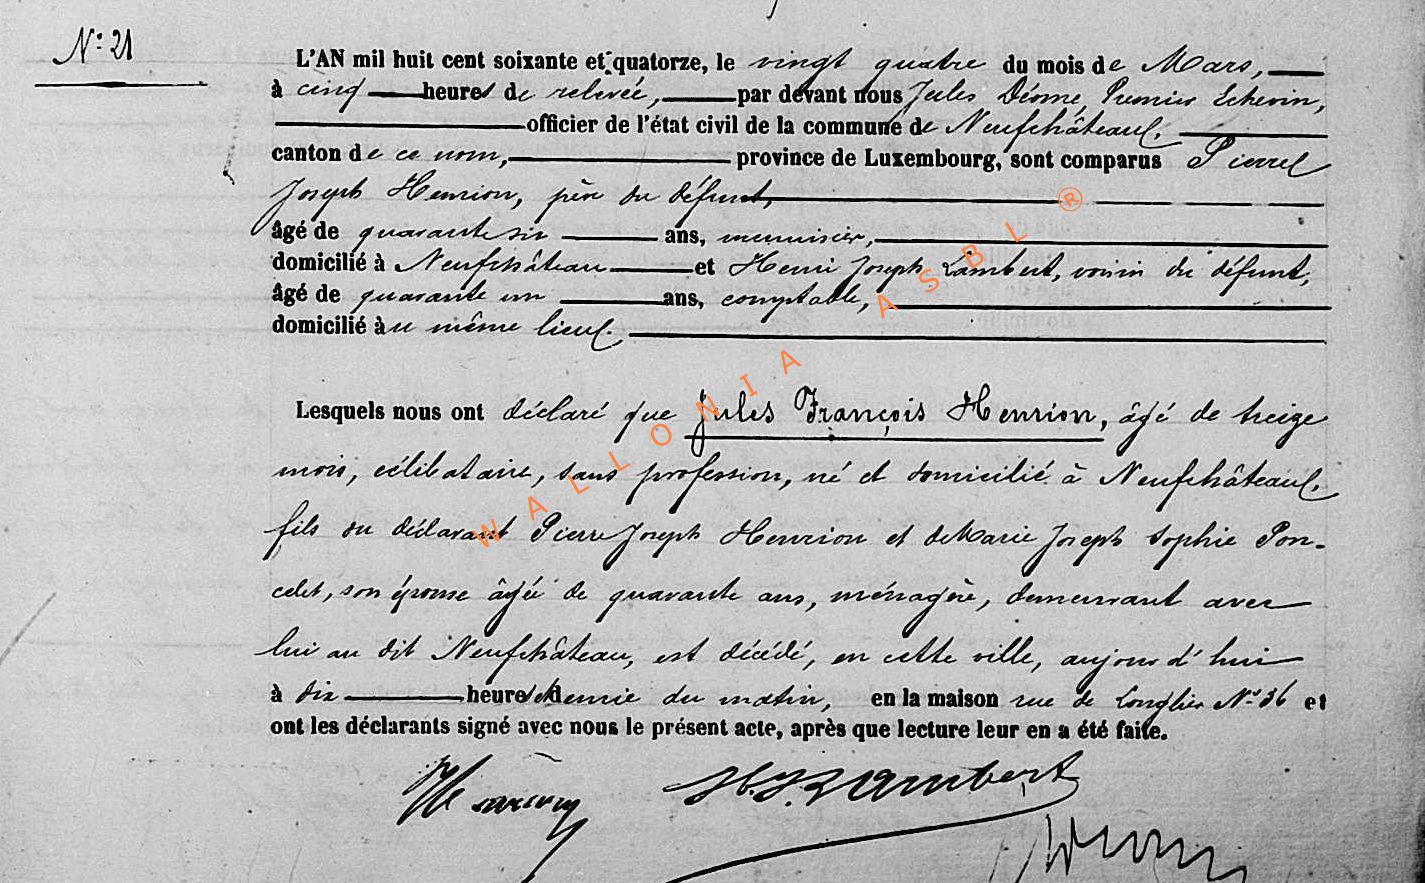 N° 21
L'AN mil huit cent soixante et quatorze, le vingt quatre du mois de Mars,
à cinq heures de relevée, par devant nous Jules Premier Echevin,
officier de l'état civil de la commune de Neufchâteau,
canton de ce nom, province de Luxembourg, sont comparus Pierre
Joseph Henrion, père du défunt,
âgé de quarante six ans, menuisier,
domicilié à Neufchâteau et Henri Joseph Lambert, voisin du défunt,
âgé de quarante un ans, comptable,
domicilié au même lieu.
Lesquels nous ont déclaré que Jules François Henrion, âgé de treize
mois, célibataire, sans profession, né et domicilié à Neufchâteau,
fils du déclarant Pierre Joseph Henrion et de Marie Joseph Sophie Pon-
celet, son épouse âgée de quarante ans, ménagère, demeurant avec
lui au dit Neufchâteau, est décédé, en cette ville, aujourd'hui
à dix heures et demie du matin, en la maison rue de Longlier N° 36 et
ont les déclarants signé avec nous le présent acte, après que lecture leur en a été faite.
Henrion H. J. Lambert
WALLONIA ASBL ®